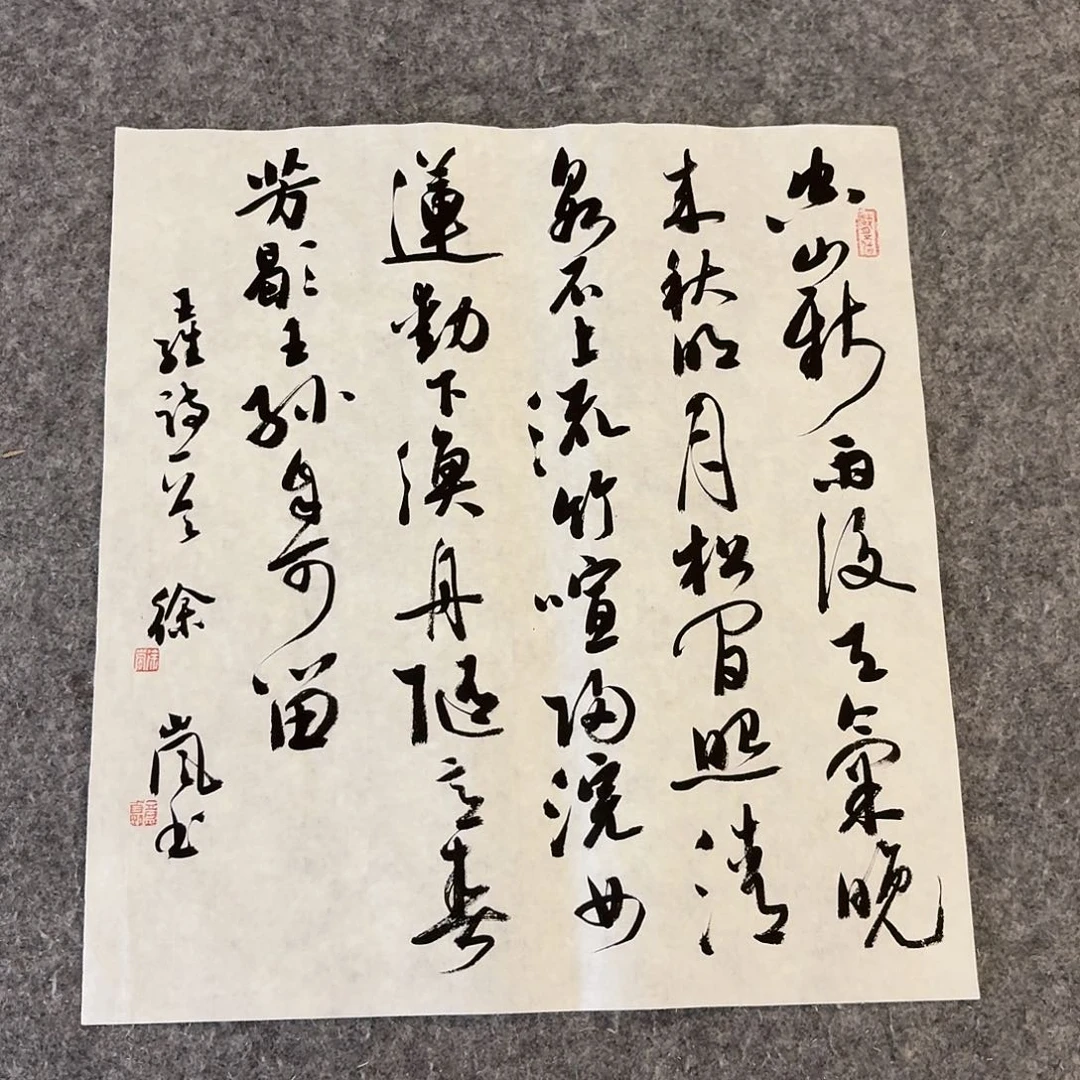 空山新雨後天氣晚
来秋明月松間照清
泉石上流竹喧歸浣女
蓮動下漁舟隨意春
芳歇王孫自可留
王維詩一首 徐嵐書